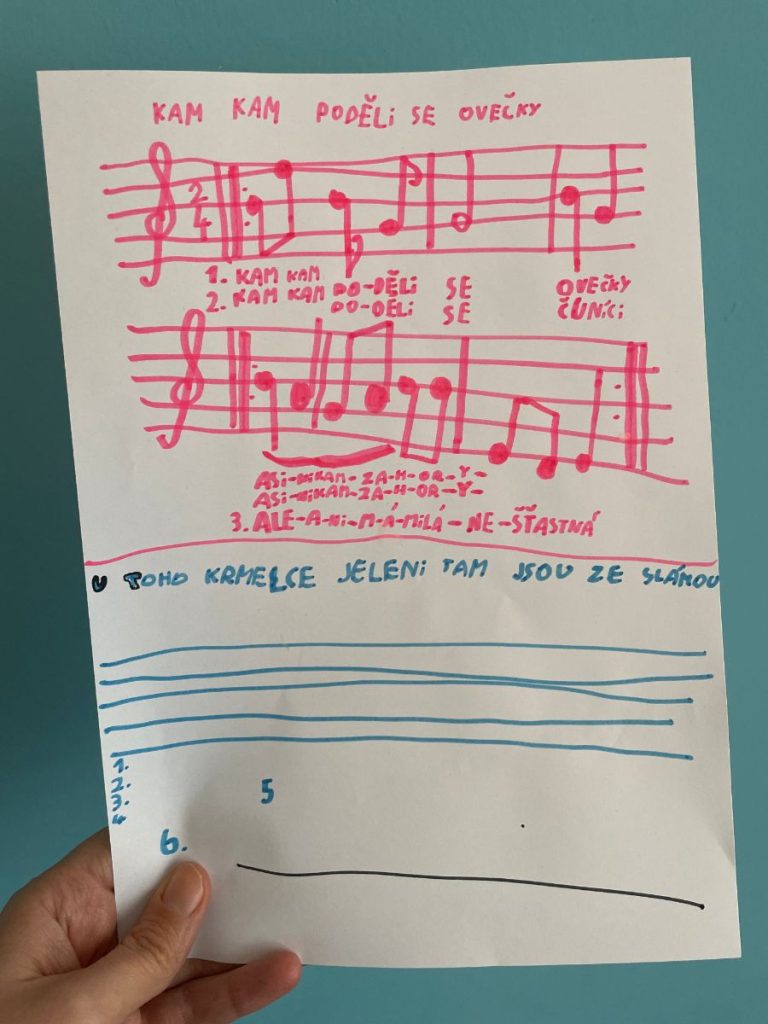 KAM KAM PODĚLI SE OVEČKY
2
4
1. KAM KAM PO-DĚLI SE OVEČKY
2. KAM KAM PO-DĚLI SE ČUNÍCI
ASI-NIKAM-ZA-H-OR-Y-
ASI-NIKAM-ZA-H-OR-Y-
3. ALE-A-NI-M-Á-MILÁ-NE-ŠŤASTNÁ
U TOHO KRMELCE JELENI TAM JSOU ZE SLÁMOU
1.
2.
3.
4
5
6.